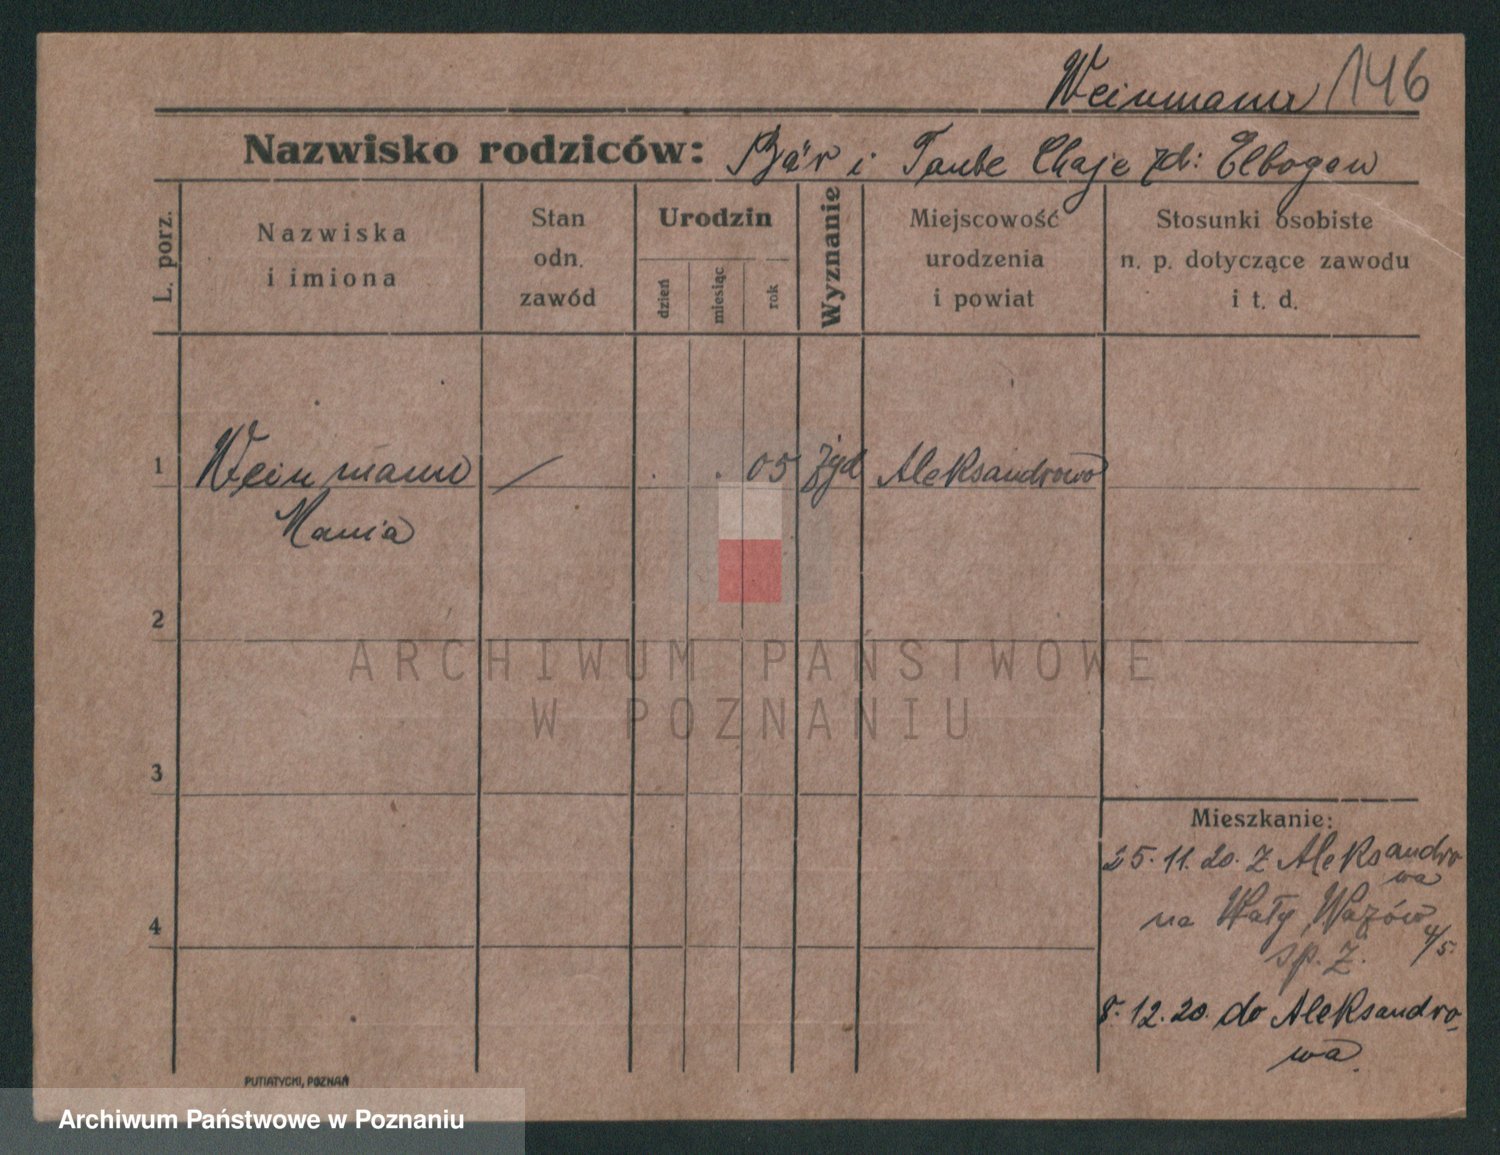 Weinmann 146
Nazwisko rodziców: Bär i Taube Chaje zd: Elbogen
L. porz.
Nazwiska
i imiona
Stan
odn.
zawód
Urodzin
dzień
miesiąc
rok
Wyznanie
Miejscowość
urodzenia
i powiat
Stosunki osobiste
n. p. dotyczące zawodu
i t. d.
1 Weinmann / . . 05 żyd Aleksandrowo
Mania
2
ARCHIWUM PAŃSTWOWE
W POZNANIU
3
Mieszkanie:
25.11.20. z Aleksandro
wa
na Wały Wazów
4/5.
sp. z.
4
8.12.20. do Aleksandro-
wa.
PUTIATYCKI, POZNAŃ
Archiwum Państwowe w Poznaniu